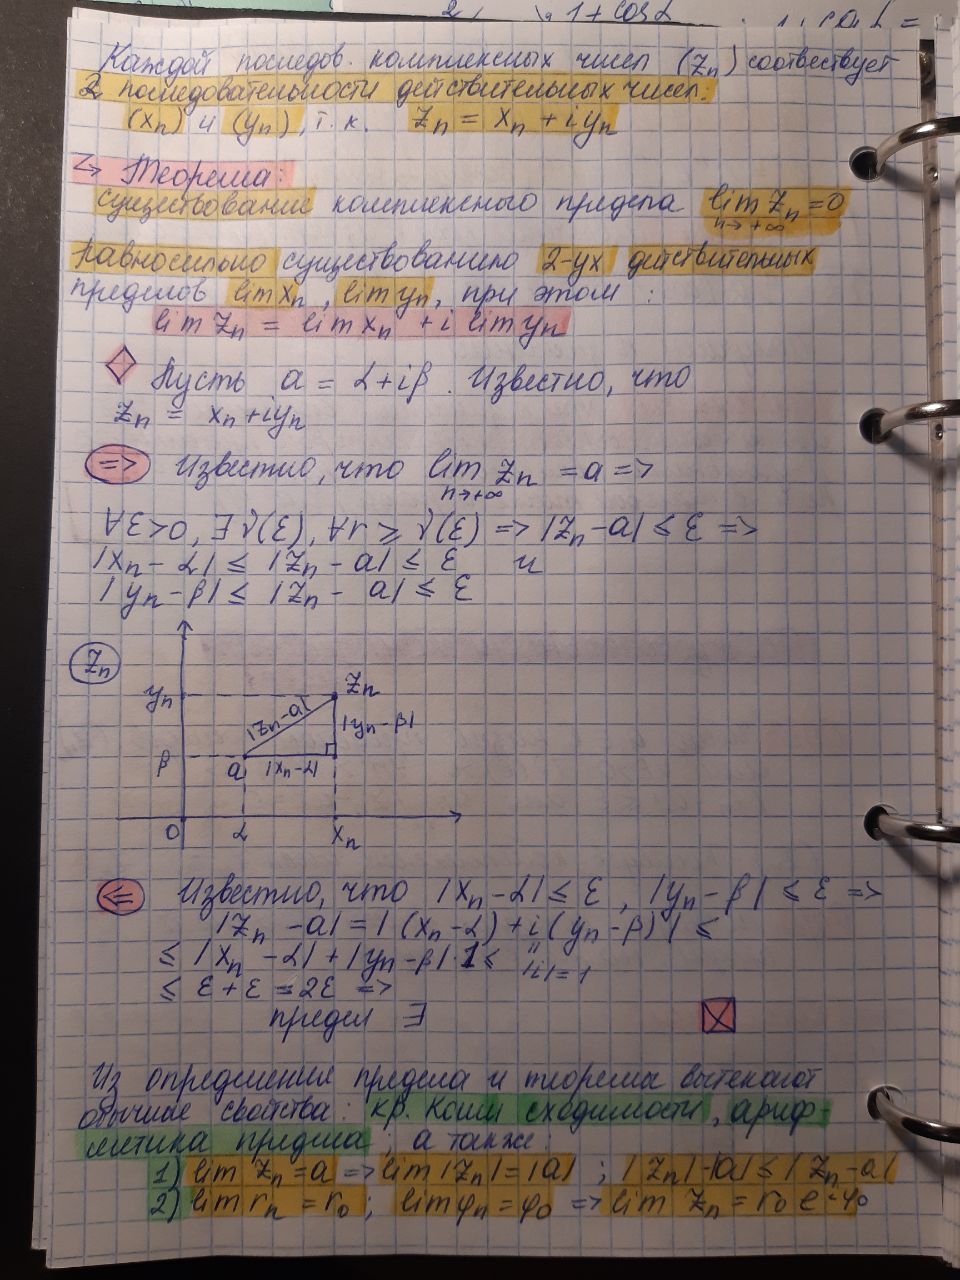 2 1 + cos α
Каждой послед. комплексных чисел (zₙ) соотвествует
2 последовательности действительных чисел:
(xₙ) и (yₙ), т.к. zₙ = xₙ + iyₙ
↳ Теорема:
Существование комплексного предела lim zₙ = 0
n→+∞
равносильно существованию 2-ух действительных
пределов lim xₙ, lim yₙ, при этом:
lim zₙ = lim xₙ + i lim yₙ
Пусть a = α + iβ. Известно, что
zₙ = xₙ + iyₙ
=> Известно, что lim zₙ = a =>
n→+∞
∀ε>0, ∃N(ε), ∀n ≥ N(ε) => |zₙ - a| ≤ ε =>
|xₙ - α| ≤ |zₙ - a| ≤ ε и
|yₙ - β| ≤ |zₙ - a| ≤ ε
zₙ
yₙ
zₙ
|zₙ - a|
|yₙ - β|
β
a
|xₙ - α|
0 α xₙ
<= Известно, что |xₙ - α| ≤ ε, |yₙ - β| ≤ ε =>
|zₙ - a| = |(xₙ - α) + i(yₙ - β)| ≤
≤ |xₙ - α| + |yₙ - β|·1 ≤ |i| = 1
≤ ε + ε = 2ε =>
предел ∃
Из определения предела и теорема вытекают
обычные свойства: кр. Коши сходимости, ариф-
метика предела; а также:
1) lim zₙ = a => lim |zₙ| = |a| ; |zₙ| - |a| ≤ |zₙ - a|
2) lim rₙ = r₀; lim φₙ = φ₀ => lim zₙ = r₀ e^(iφ₀)